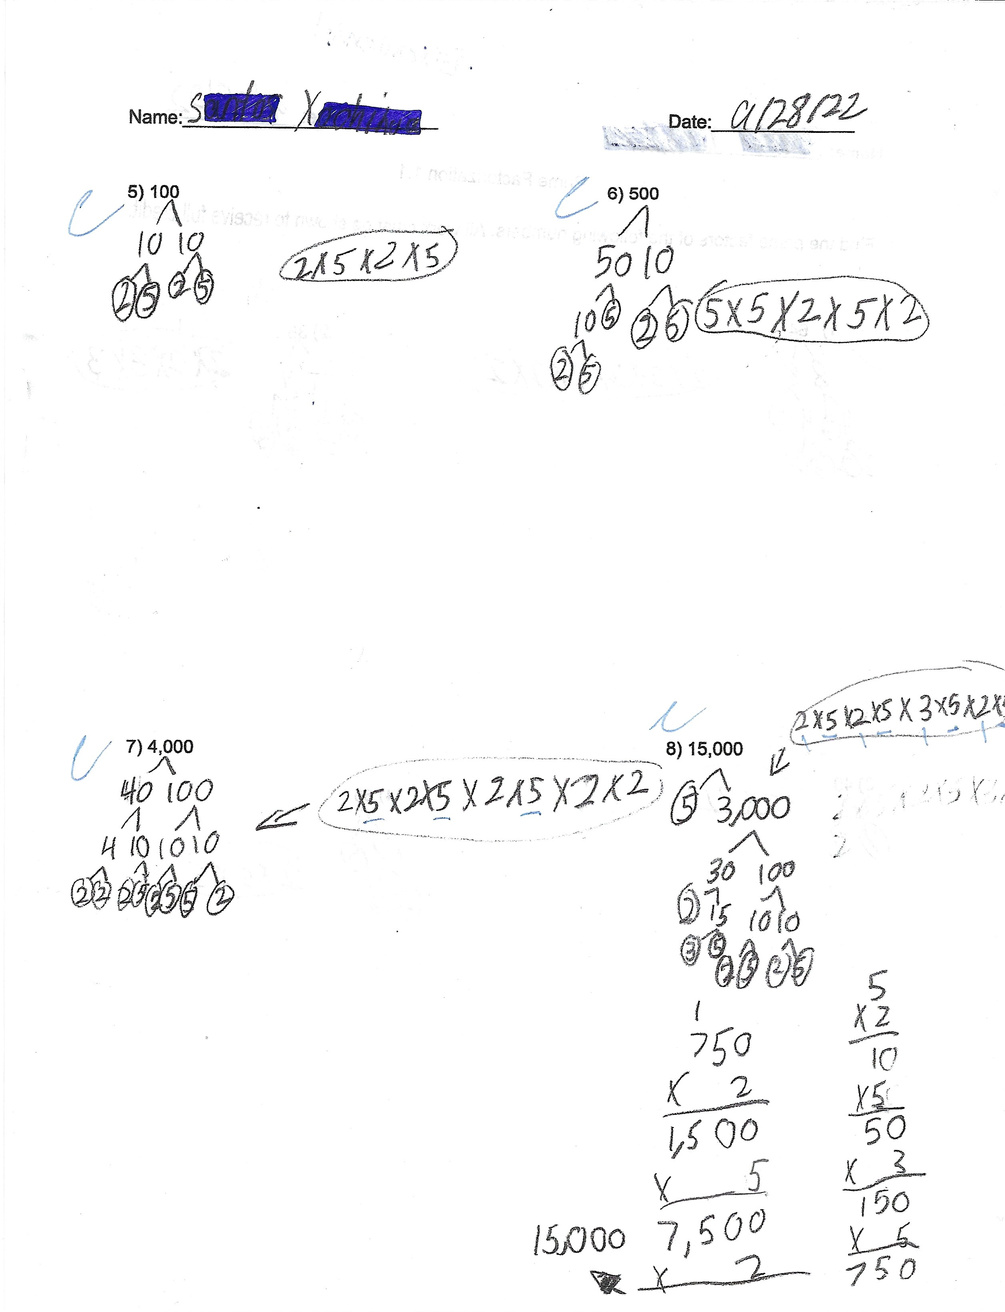 Name: S X
Date: 9/28/22
5) 100
10 10
2 5 2 5
2x5x2x5
6) 500
50 10
10 5 2 5
2 5
5x5x2x5x2
7) 4,000
40 100
4 10 10 10
2 2 2 5 2 5 5 2
2x5x2x5x2x5x2x2
8) 15,000
2x5x2x5x3x5x2x5
5 3,000
30 100
2 15 10 10
3 5
2 5 2 5
1
750
x 2
1,500
x 5
7,500
x 2
15,000
5
x2
10
x5
50
x 3
150
x 5
750